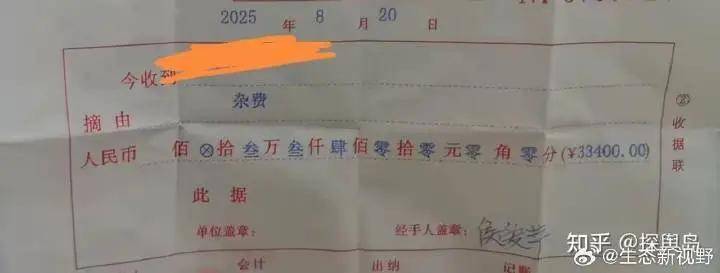 2025 年 8 月 20 日
今收到
杂费
摘由
人民币 佰⊗拾叁万叁仟肆佰零拾零元零角零分(¥33400.00)
此据
单位盖章： 经手人盖章：
②收据联
会计 出纳 记账
知乎 @探舆岛
@生态新视野